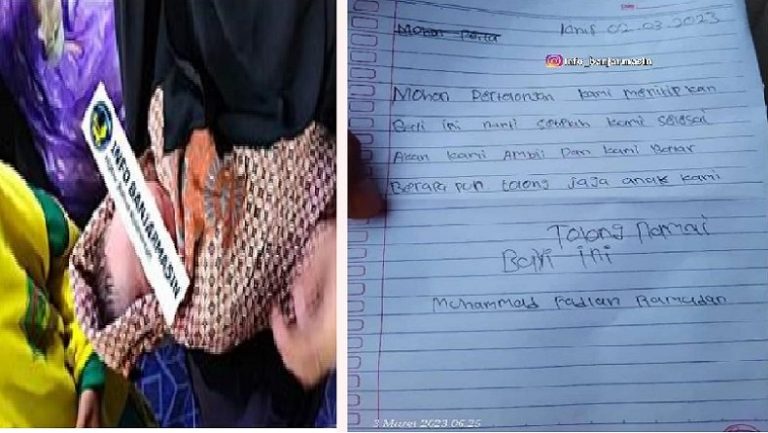 INFO BANJARMASIN
Mohon Perto
Kmis 02.03.2023
info_banjarmasin
Mohon Pertolongan kami menitipkan
Bayi ini nanti setelah kami selesai
Akan kami Ambil Dan kami Bayar
Berapa pun tolong jaga anak kami
Tolong Namai
Bayi ini
Muhammad Fadlan Ramadan
3 Maret 2023 06.25